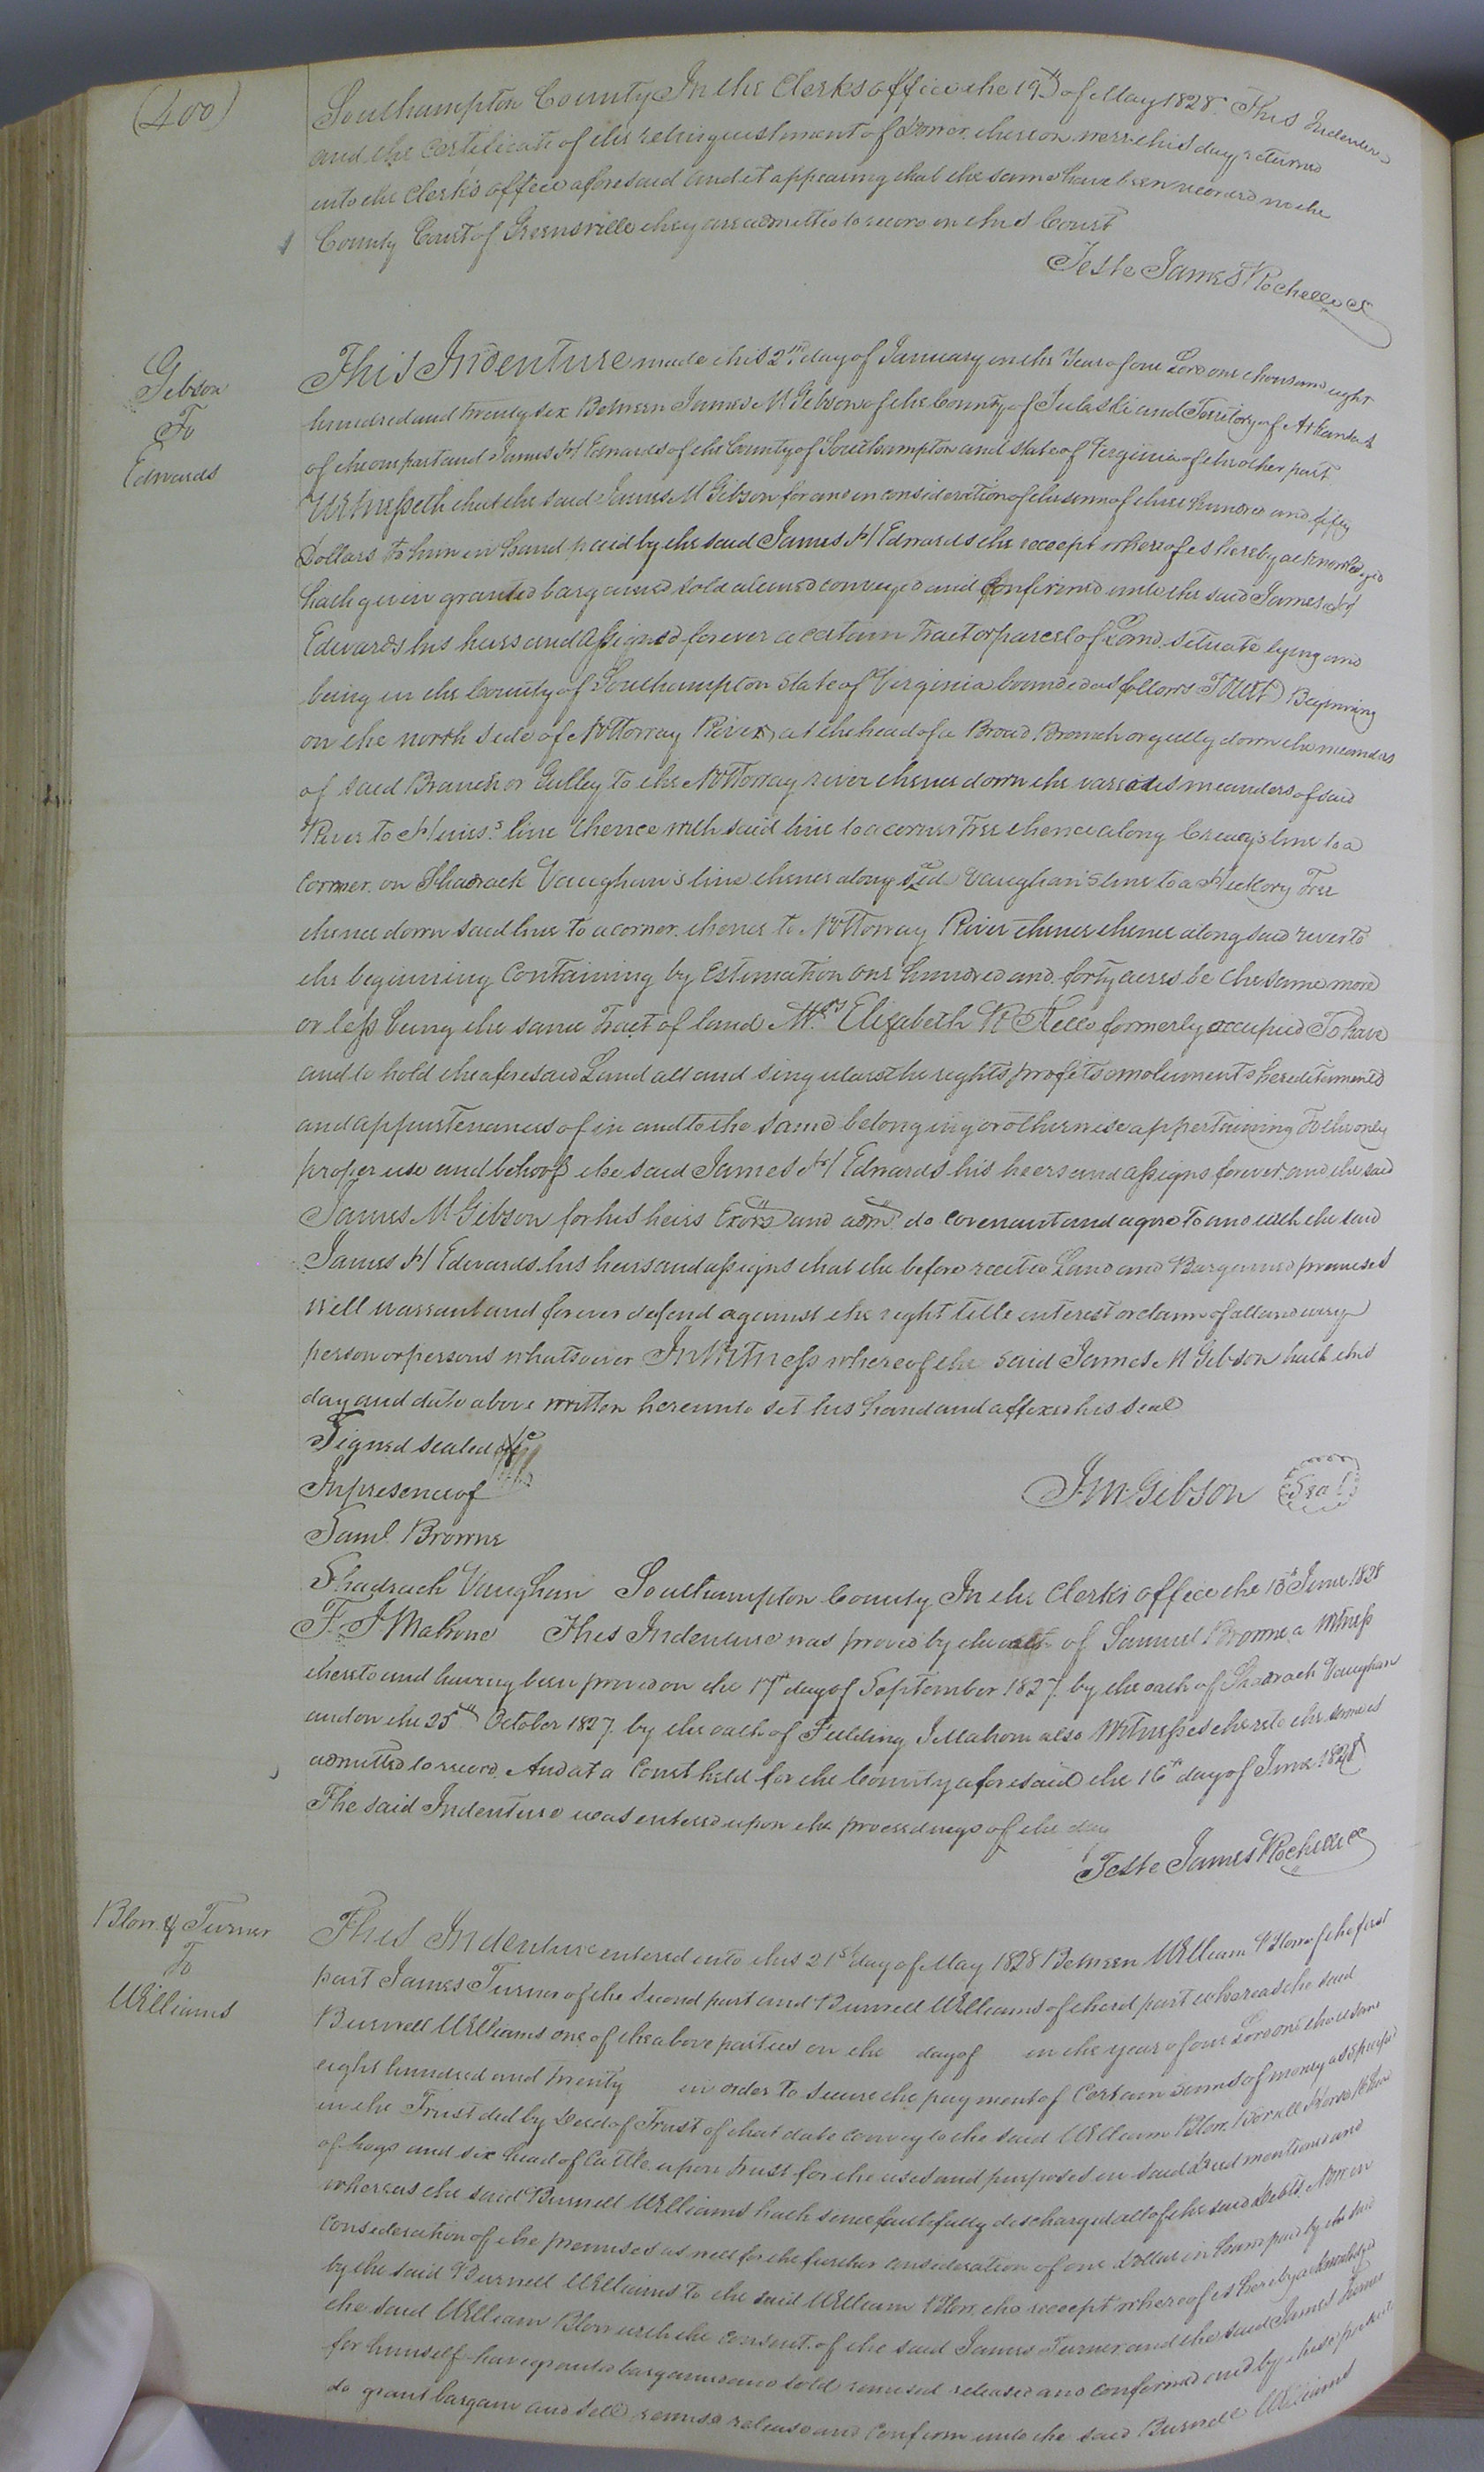 (400)
Southampton County In the Clerks office the 19th of May 1828. This Indenture
and the Certificate of the relinquishment of Dower thereon were this day returned
into the Clerk's office aforesaid and it appearing that the same have been record in the
County Court of Greensville they are admitted to record in this Court
Teste James Rochelle CC
Gibson
To
Edwards
This Indenture made this 2nd day of January in the Year of our Lord one thousand eight
hundred and twenty six Between James M Gibson of the County of Pulaski and Territory of Arkansas
of the one part and James H Edwards of the County of Southampton and state of Virginia of the other part
Witnesseth that the said James M Gibson for and in consideration of the sum of three hundred and fifty
Dollars to him in hand paid by the said James H Edwards the receept whereof is hereby acknowledged
hath given granted bargained sold aliened conveyed and confirmed unto the said James H
Edwards his heirs and assigns forever a certain Tract or parcel of Land situate lying and
being in the County of Southampton State of Virginia bounded as follows To Wit) Beginning
on the north side of Nottoway River, at the head of a Broad Branch or gully down the meanders
of said Branch or Gulley to the Nottoway river thence down the various meanders of said
River to line thence with said line to a corner Tree thence along line to a
corner on Shadrack Vaughan's line thence along sd Vaughan's line to a Hickory Tree
thence down said line to a corner thence to Nottoway River thence thence along said river to
the beginning Containing by Estimation one hundred and forty acres be the same more
or less being the same Tract of land Mrs Elizabeth R Kello formerly occupied To Have
and to hold the aforesaid Land all and singular the rights profits emoluments hereditaments
and appurtenances of in and to the same belonging or otherwise appertaining To the only
proper use and behoof the said James H Edwards his heirs and assigns forever and the said
James M Gibson for his heirs Exors and adm do covenant and agree to and with the said
James H Edwards his heirs and assigns that the before recited Land and Bargained premises
will warrant and forever defend against the right title interest or claim of all and every
person or persons whatsoever In Witness whereof the said James M Gibson hath this
day and date above written hereunto set his hand and affixed his seal
Signed sealed &c
In presence of
J M Gibson Seal
Saml Browne
Shadrach Vaughan Southampton County In the Clerks office the June 1828
F. J Mahone This Indenture was proved by the oath of Samuel Browne a Witness
thereto and having been proved on the 17th day of September 1827 by the oath of Shadrach Vaughan
and on the 25th October 1827 by the oath of Fielding J Mahone also Witnesses thereto the same is
admitted to record. And at a Court held for the County aforesaid the 16th day of June 1828
The said Indenture was entered upon the proceedings of the day
Teste James Rochelle CC
Blow & Turner
To
Williams
This Indenture entered into this 21st day of May 1828 Between William Blow of the first
part James Turner of the second part and Burwell Williams of third part whereas the said
Burwell Williams one of the above parties on the day of in the year of our Lord one thousand
eight hundred and twenty in order to secure the payment of certain sums of money as specified
in the Trust ded by Deed of Trust of that date convey to the said William Blow
of hogs and six head of Cattle upon trust for the uses and purposes in said deed mentioned and
whereas the said Burwell Williams hath since faithfully discharged all of the said Debts Now in
consideration of the premises as well for the further consideration of one Dollar in hand paid by the said
by the said Burwell Williams to the said William Blow, the receept whereof is hereby acknowledged
the said William Blow with the consent of the said James Turner and the said James Turner
for himself have granted bargained and sold remised released and confirmed and by these presents
do grant bargain and sell remise release and confirm unto the said Burwell Williams